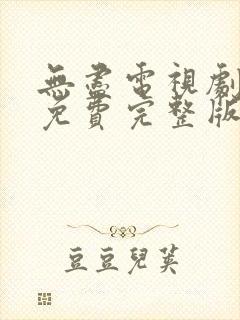 無盡電視劇
免費完整版
豆豆兒英